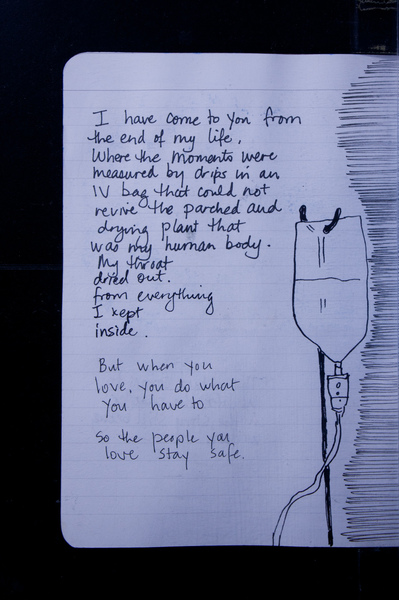 I have come to you from
the end of my life.
Where the moments were
measured by drips in an
IV bag that could not
revive the parched and
drying plant that
was my human body.
My throat
dried out.
from everything
I kept
inside.
But when you
love, you do what
you have to
So the people you
love stay safe.